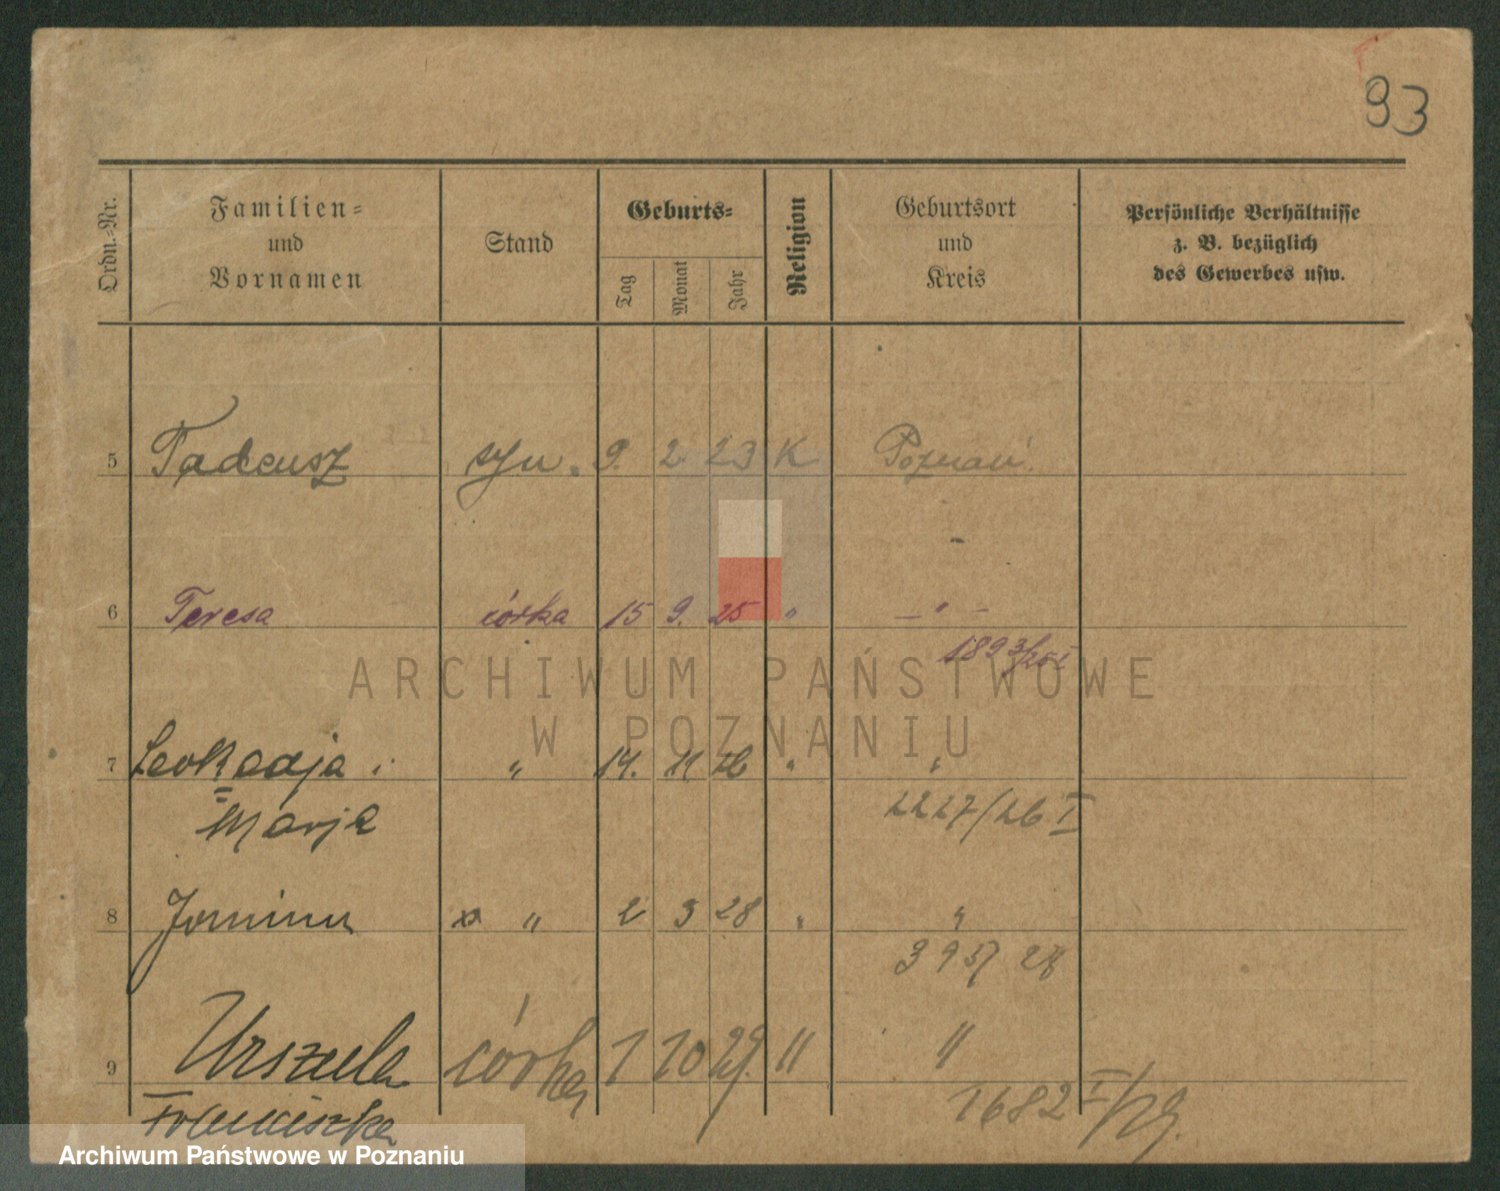 93
Ordn.-Nr.
Familien=
und
Vornamen
Stand
Geburts=
Tag
Monat
Jahr
Religion
Geburtsort
und
Kreis
Persönliche Verhältnisse
z. B. bezüglich
des Gewerbes usw.
5 Tadeusz syn. 9. 2 23 K Poznań.
6 Teresa córka 15 9. 25 " — " —
1893/25 I
ARCHIWUM PAŃSTWOWE
W POZNANIU
7 Leokadja " 14. 11 26 " "
Marja 2227/26 I
8 Janina " 2 3 28 " "
395/28
9 Urszula córka 1 10 29. " "
Franciszka 1682 I/29.
Archiwum Państwowe w Poznaniu